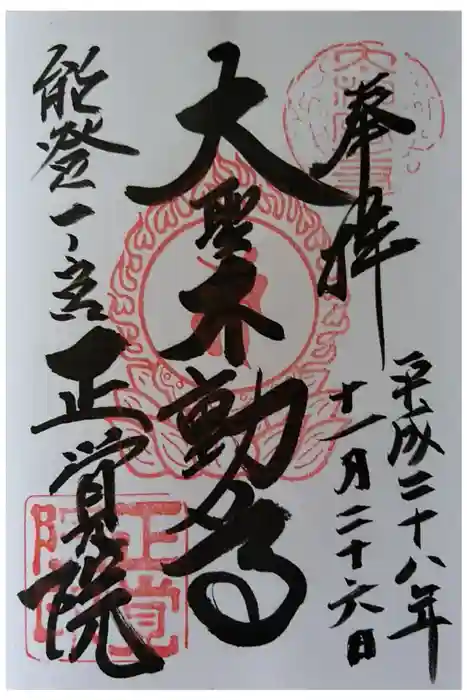 奉拝
平成二十八年
十一月二十六日
大聖不動尊
能登一ノ宮
正覚院
正覚
院印